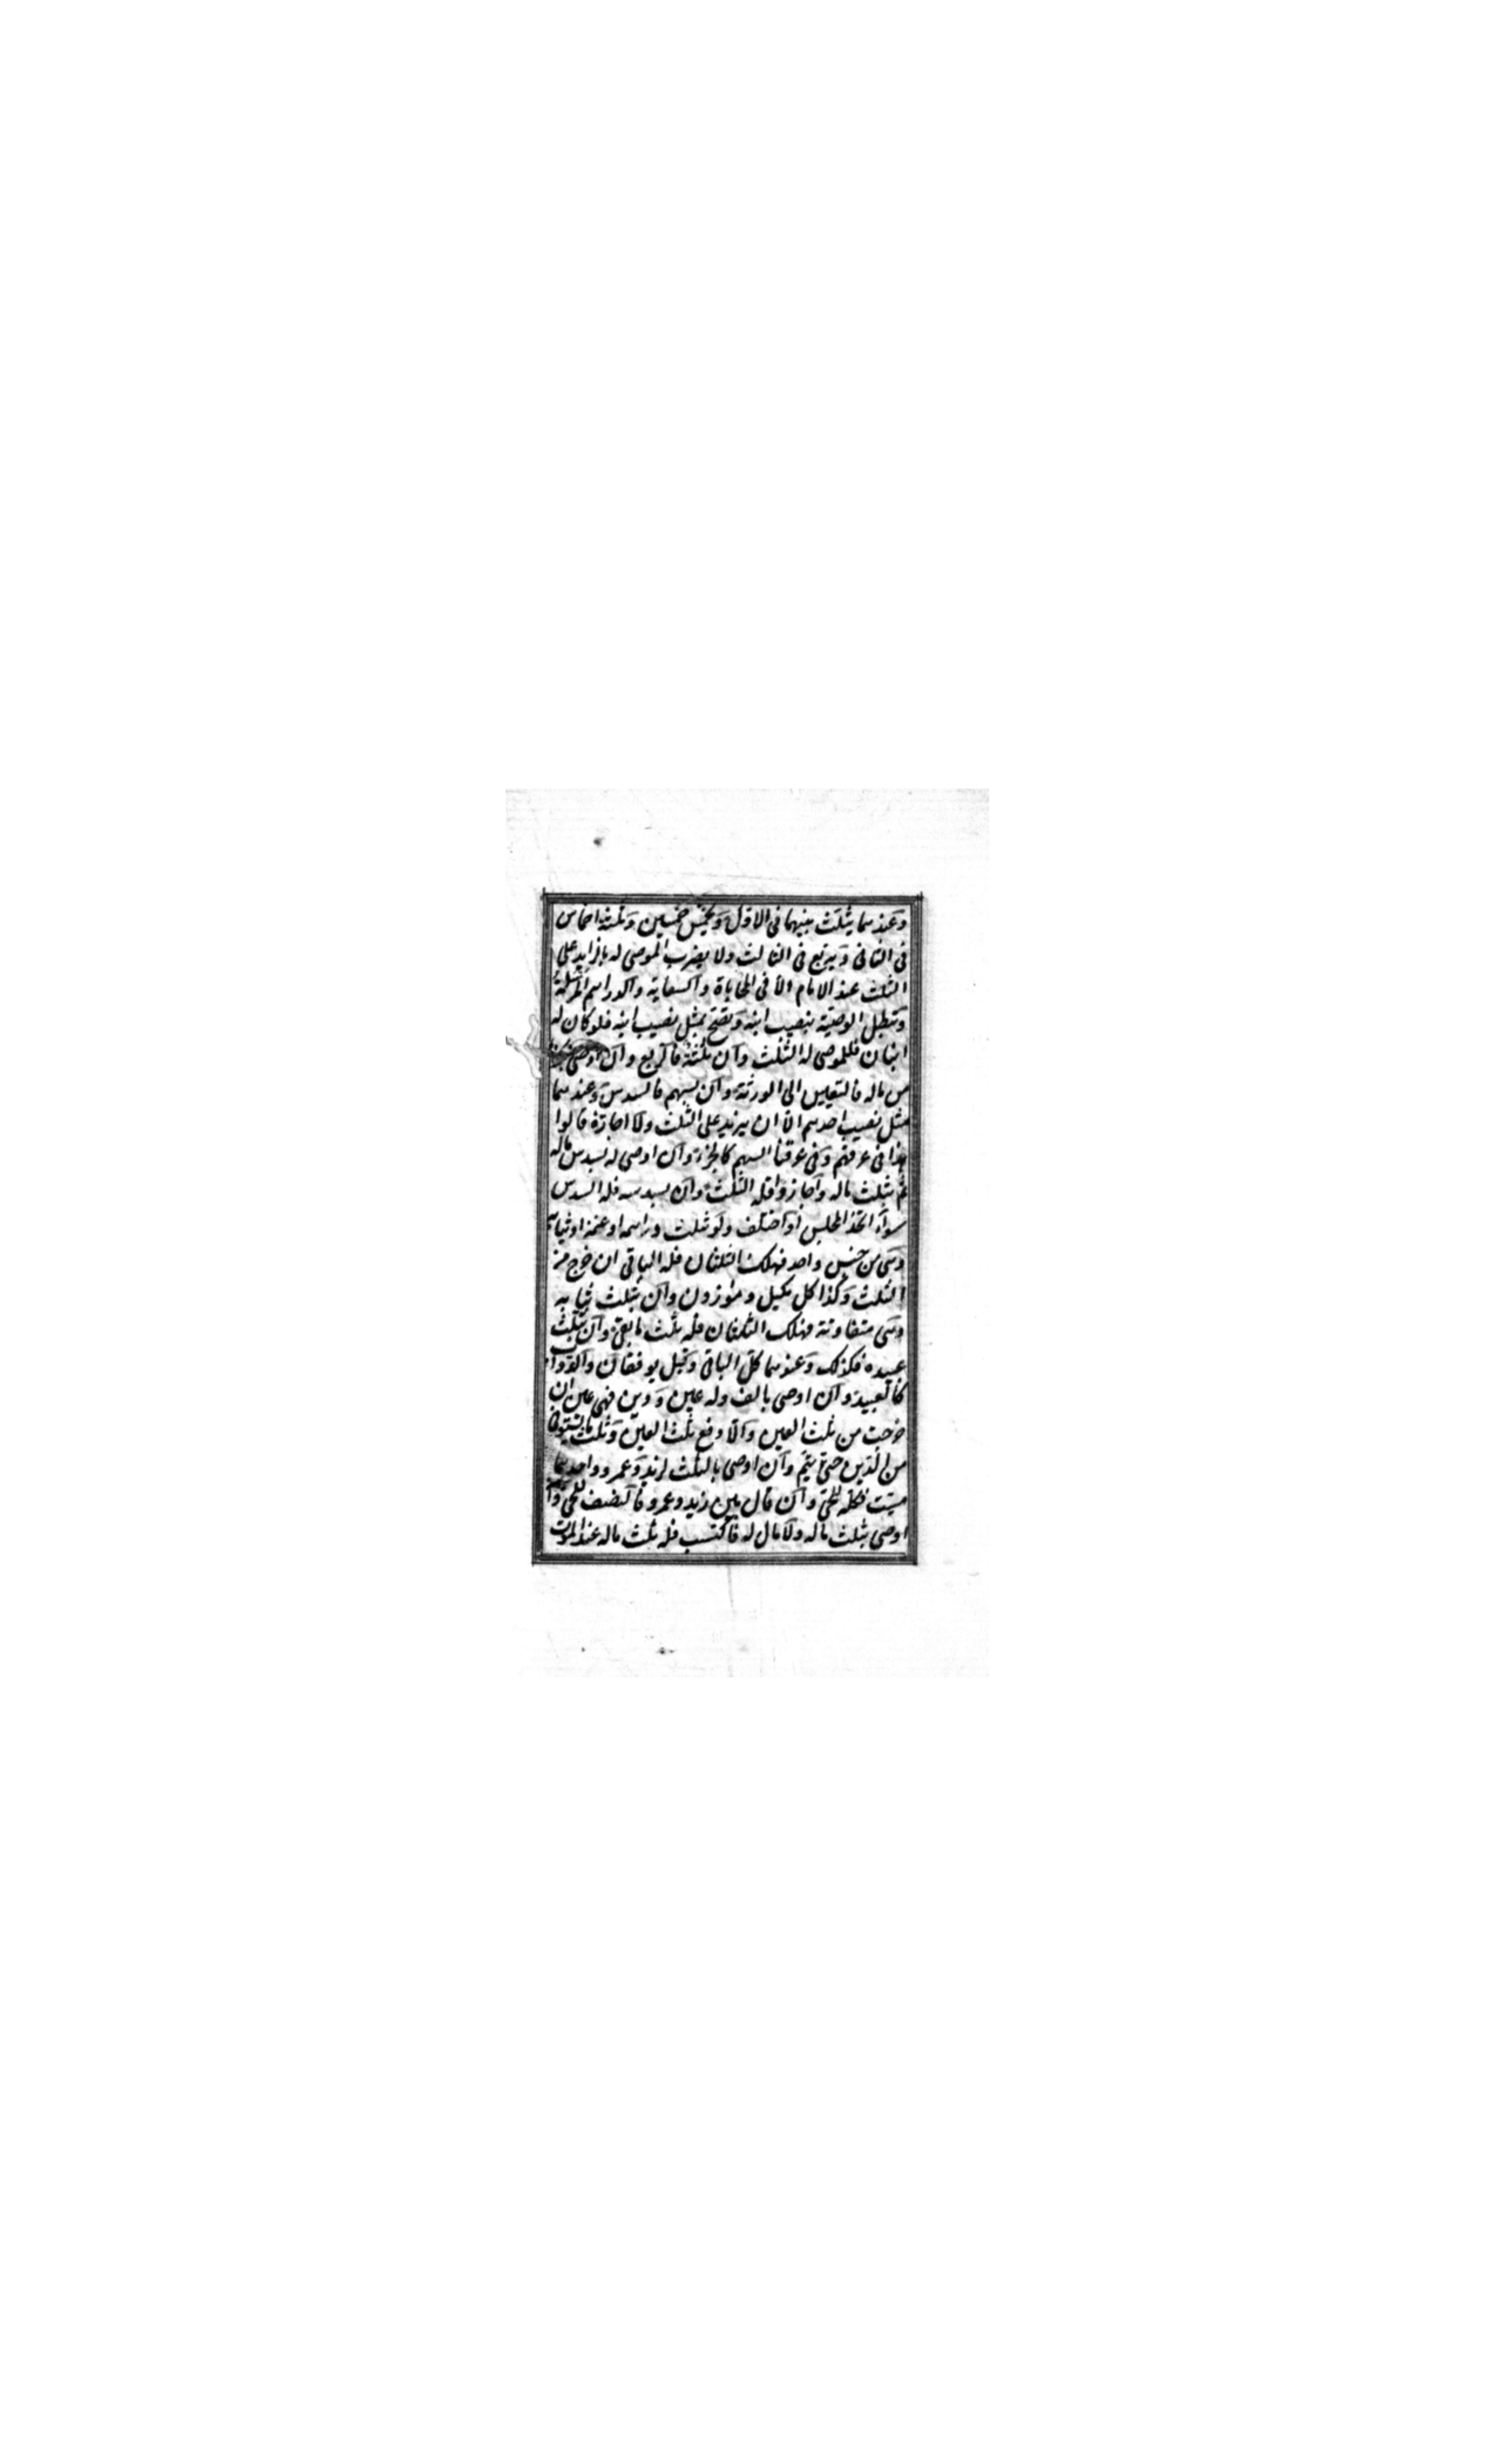 وعندهما يثلث بينهما فى الاول ويخمس خمسين وثلثة اخماس
فى الثانى ويربع فى الثالث ولا يضرب الموصى له بازايد على
الثلث عند الامام الا فى المحاباة والسعاية والدراهم المرسلة
وتبطل الوصية بنصيب ابنه وتصح بمثل نصيب ابنه فلو كان له
ابنان فللموصى له الثلث وان ثلثة فالربع وان اوصى بجزء
من ماله فالتعيين الى الورثة وان بسهم فالسدس وعندهما
مثل نصيب احدهم الا ان يزيد على الثلث ولا اجازة قالوا
هذا فى عرفهم وفى عرفنا السهم كالجزء وان اوصى له بسدس ماله
ثم بثلث ماله واجازوا فله الثلث وان بسدسه فله السدس
سواء اتحد المجلس او اختلف ولو بثلث دراهمه او غنمه او ثيابه
وهى من جنس واحد فهلك الثلثان فله الباقى ان خرج من
الثلث وكذا كل مكيل وموزون وان بثلث ثيابه
وهى متفاوتة فهلك الثلثان فله ثلث ما بقى وان بثلث
عبيده فكذلك وعندهما كل الباقى وقيل يوفقان والدواب
كالعبيد وان اوصى بالف وله عين ودين فهى عين ان
خرجت من ثلث العين والا دفع ثلث العين وثلث ما يستوفى
من الدين حتى يتم وان اوصى بالثلث لزيد وعمرو واحدهما
ميت فكله للحى وان قال بين زيد وعمرو فالنصف للحى وان
اوصى بثلث ماله ولا مال له فاكتسب فله ثلث ماله عند الموت